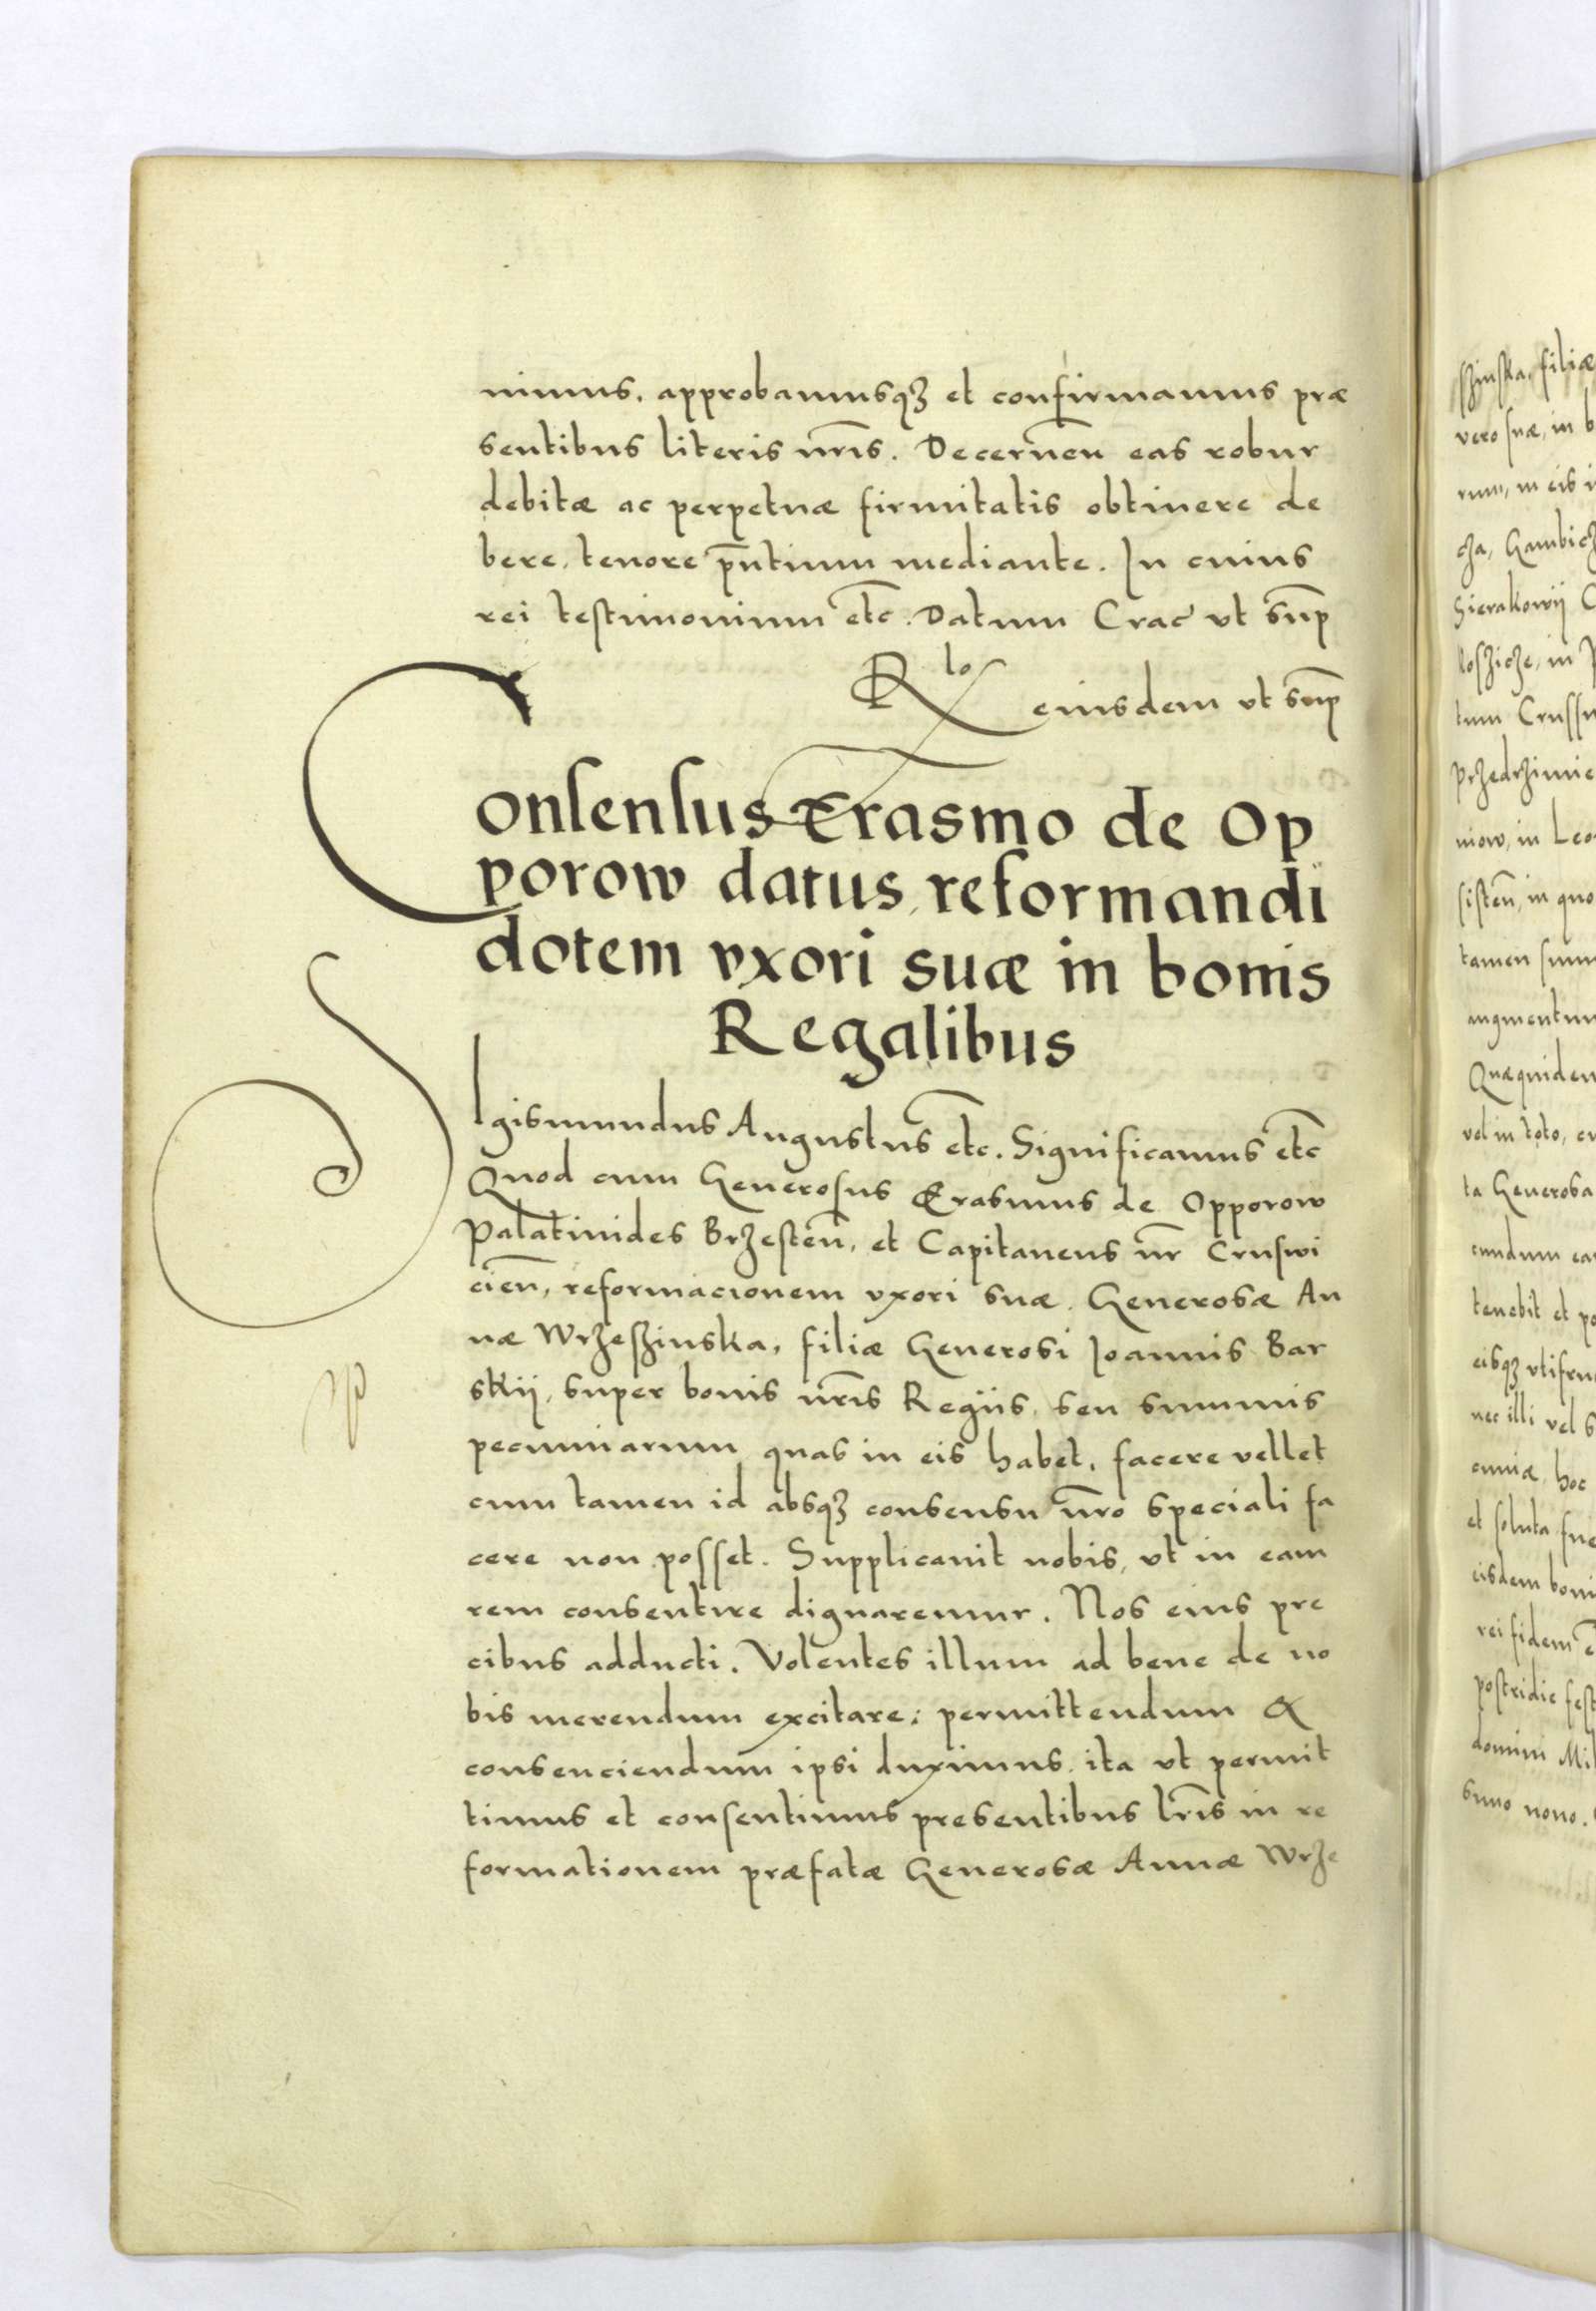 nimus, approbamusqꝫ et confirmamus præ
sentibus literis nr̃is. Decernen̄ eas robur
debitæ ac perpetuæ firmitatis obtinere de
bere, tenore p̄ntium mediante. In cuius
rei testimonium etc̄. Datum Crac̄ vt sup̄
Rlo eiusdem vt sup̄
Consensus Erasmo de Op
porow datus, reformandi
dotem vxori suæ in bonis
Regalibus
SIgismundus Augustus etc. Significamus etc̄
Quod cum Generosus Erasmus de Opporow
Palatinides Brzesten̄, et Capitaneus nr̄ Cruswi
cien̄, reformacionem vxori suæ, Generosæ An
næ Wrzeszinska, filiæ Generosi Joannis Bar
skij, super bonis nr̄is Regijs, seu summis
pecuniarum quas in eis habet, facere vellet
cum tamen id absqꝫ consensu nr̄o speciali fa
cere non posset. Supplicauit nobis, vt in eam
rem consentire dignaremur. Nos eius pre
cibus adducti. Volentes illum ad bene de no
bis merendum excitare; permittendum &
consenciendum ipsi duximus, ita vt permit
timus et consentimus presentibus lr̄is in re
formationem præfatæ Generosæ Annæ Wrze
szinska, filiæ
vero suæ, in b
rum, in eis i
cza, Gambicz
Sierakowij C
loszicze, in P
tum Crussu
Przedrzimie
niow, in Leo
sisten̄, in quo
tamen summ
augmentum
Quæquidem
vel in toto, cu
ta Generosa
cundum ea
tenebit et po
eisqꝫ vtifru
nec illi vel s
cuniæ, hoc
et soluta fue
eisdem boni
rei fidem e
postridie fest
domini Mil
simo nono.